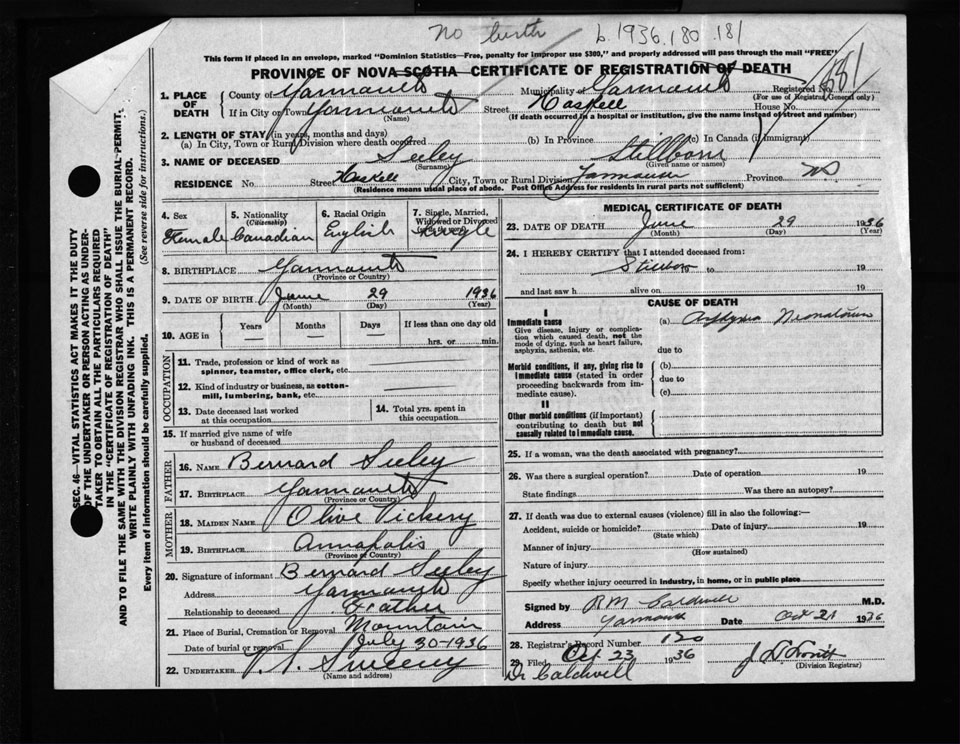 No birth b. 1936, 180 181
This form if placed in an envelope, marked "Dominion Statistics—Free, penalty for improper use $300," and properly addressed will pass through the mail "FREE"
PROVINCE OF NOVA SCOTIA CERTIFICATE OF REGISTRATION OF DEATH
1. PLACE OF DEATH County of Yarmouth Municipality of Yarmouth Registered No.
(For use of Registrar General only)
If in City or Town Yarmouth Street Haskell House No.
(Name) (If death occurred in a hospital or institution, give the name instead of street and number)
2. LENGTH OF STAY (in years, months and days)
(a) In City, Town or Rural Division where death occurred (b) In Province (c) In Canada (if immigrant)
3. NAME OF DECEASED Seeley Stillborn
(Surname) (Given name or names)
RESIDENCE No. Street Haskell City, Town or Rural Division Yarmouth Province NS
(Residence means usual place of abode. Post Office Address for residents in rural parts not sufficient)
4. Sex 5. Nationality (Citizenship) 6. Racial Origin 7. Single, Married, Widowed or Divorced
Female Canadian English Single
8. BIRTHPLACE Yarmouth
(Province or Country)
9. DATE OF BIRTH June 29 1936
(Month) (Day) (Year)
10. AGE in Years Months Days If less than one day old
hrs. or min.
OCCUPATION
11. Trade, profession or kind of work as spinner, teamster, office clerk, etc.
12. Kind of industry or business, as cotton-mill, lumbering, bank, etc.
13. Date deceased last worked at this occupation
14. Total yrs. spent in this occupation
15. If married give name of wife or husband of deceased
FATHER
16. NAME Bernard Seeley
17. BIRTHPLACE Yarmouth
(Province or Country)
MOTHER
18. MAIDEN NAME Olive Vickery
19. BIRTHPLACE Annapolis
(Province or Country)
20. Signature of informant Bernard Seeley
Address Yarmouth
Relationship to deceased Father
21. Place of Burial, Cremation or Removal Mountain
Date of burial or removal July 30-1936
22. UNDERTAKER V. S. Sweeny
(Name and address)
MEDICAL CERTIFICATE OF DEATH
23. DATE OF DEATH June 29 1936
(Month) (Day) (Year)
24. I HEREBY CERTIFY that I attended deceased from:
Stillborn to 19
and last saw h alive on 19
CAUSE OF DEATH
I
Immediate cause (a) Asphyxia Neonatorum
Give disease, injury or complication which caused death, not the mode of dying, such as heart failure, asphyxia, asthenia, etc.
due to
Morbid conditions, if any, giving rise to immediate cause (stated in order proceeding backwards from immediate cause).
(b)
due to
(c)
II
Other morbid conditions (if important) contributing to death but not causally related to immediate cause.
25. If a woman, was the death associated with pregnancy?
26. Was there a surgical operation? Date of operation 19
State findings Was there an autopsy?
27. If death was due to external causes (violence) fill in also the following:—
Accident, suicide or homicide? Date of injury 19
(State which)
Manner of injury
(How sustained)
Nature of injury
Specify whether injury occurred in industry, in home, or in public place
Signed by R M Caldwell M.D.
Address Yarmouth Date Oct 21 1936
28. Registrar's Record Number 120
29. Filed Oct 23 1936
(Division Registrar)
Dr Caldwell
SEC. 46—VITAL STATISTICS ACT MAKES IT THE DUTY
OF THE UNDERTAKER OR PERSON ACTING AS UNDER-
TAKER TO OBTAIN ALL THE PARTICULARS REQUIRED
IN THE "CERTIFICATE OF REGISTRATION OF DEATH"
AND TO FILE THE SAME WITH THE DIVISION REGISTRAR WHO SHALL ISSUE THE BURIAL PERMIT.
WRITE PLAINLY WITH UNFADING INK. THIS IS A PERMANENT RECORD.
Every item of information should be carefully supplied. (See reverse side for instructions.)